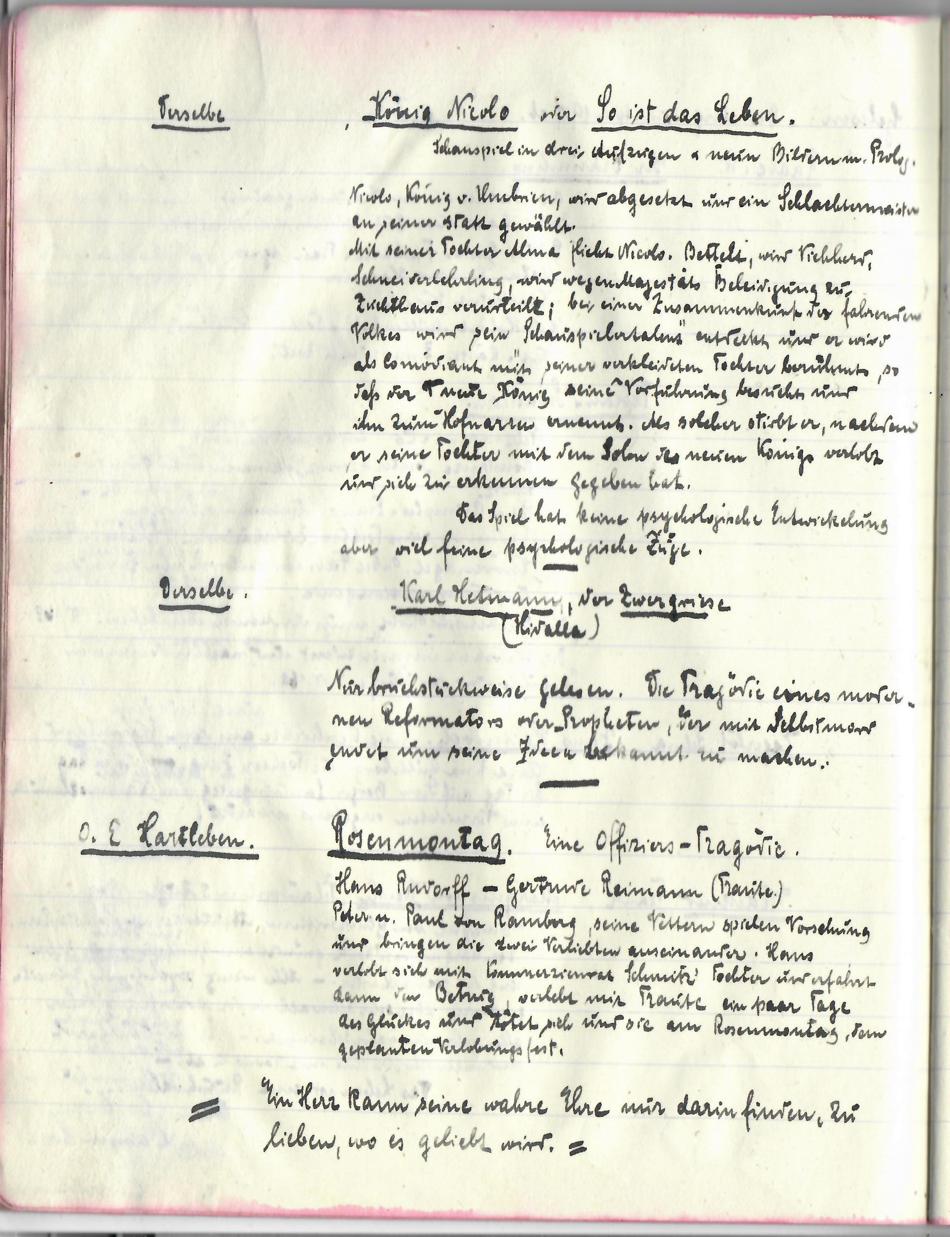 Derselbe König Nicolo oder So ist das Leben.
Schauspiel in drei Aufzügen u neun Bildern m. Prolog.
Nicolo, König v. Umbrien, wird abgesetzt und ein Schlachtermeister
an seiner statt gewählt.
Mit seiner Tochter Alma flieht Nicolo. Bettelt, wird Viehherd,
Schneiderlehrling, wird wegen Majestäts Beleidigung zu
Zuchthaus verurteilt; bei einer Zusammenkunft des fahrenden
Volkes wird sein Schauspielertalent entdeckt und er wird
als Comödiant mit seiner verkleideten Tochter berühmt, so
daß der neue König seine Vorführung besucht und
ihn zum Hofnarren ernennt. Als solcher stirbt er, nachdem
er seine Tochter mit dem Sohn des neuen Königs verlobt
und sich zu erkennen gegeben hat.
Das Spiel hat keine psychologische Entwickelung
aber viel feine psychologische Züge.
Derselbe. Karl Hetmann, der Zwergriese
(Hidalla)
Nur bruchstückweise gelesen. Die Tragödie eines moder-
nen Reformators oder Propheten, der mit Selbstmord
endet um seine Ideen bekannt zu machen.
O. E Hartleben. Rosenmontag. Eine Offiziers-Tragödie.
Hans Rudorff – Gertrude Reimann (Traute.)
Peter u. Paul von Ramberg, seine Vettern spielen Vorsehung
und bringen die zwei Verliebten auseinander. Hans
verlobt sich mit Kommerzienrat Schmitz' Tochter und erfährt
dann den Betrug, verlebt mit Traute ein paar Tage
des Glückes und tötet sich und sie am Rosenmontag, dem
geplanten Verlobungsfest.
= Ein Herz kann seine wahre Ehre nur darin finden, zu
lieben, wo es geliebt wird. =